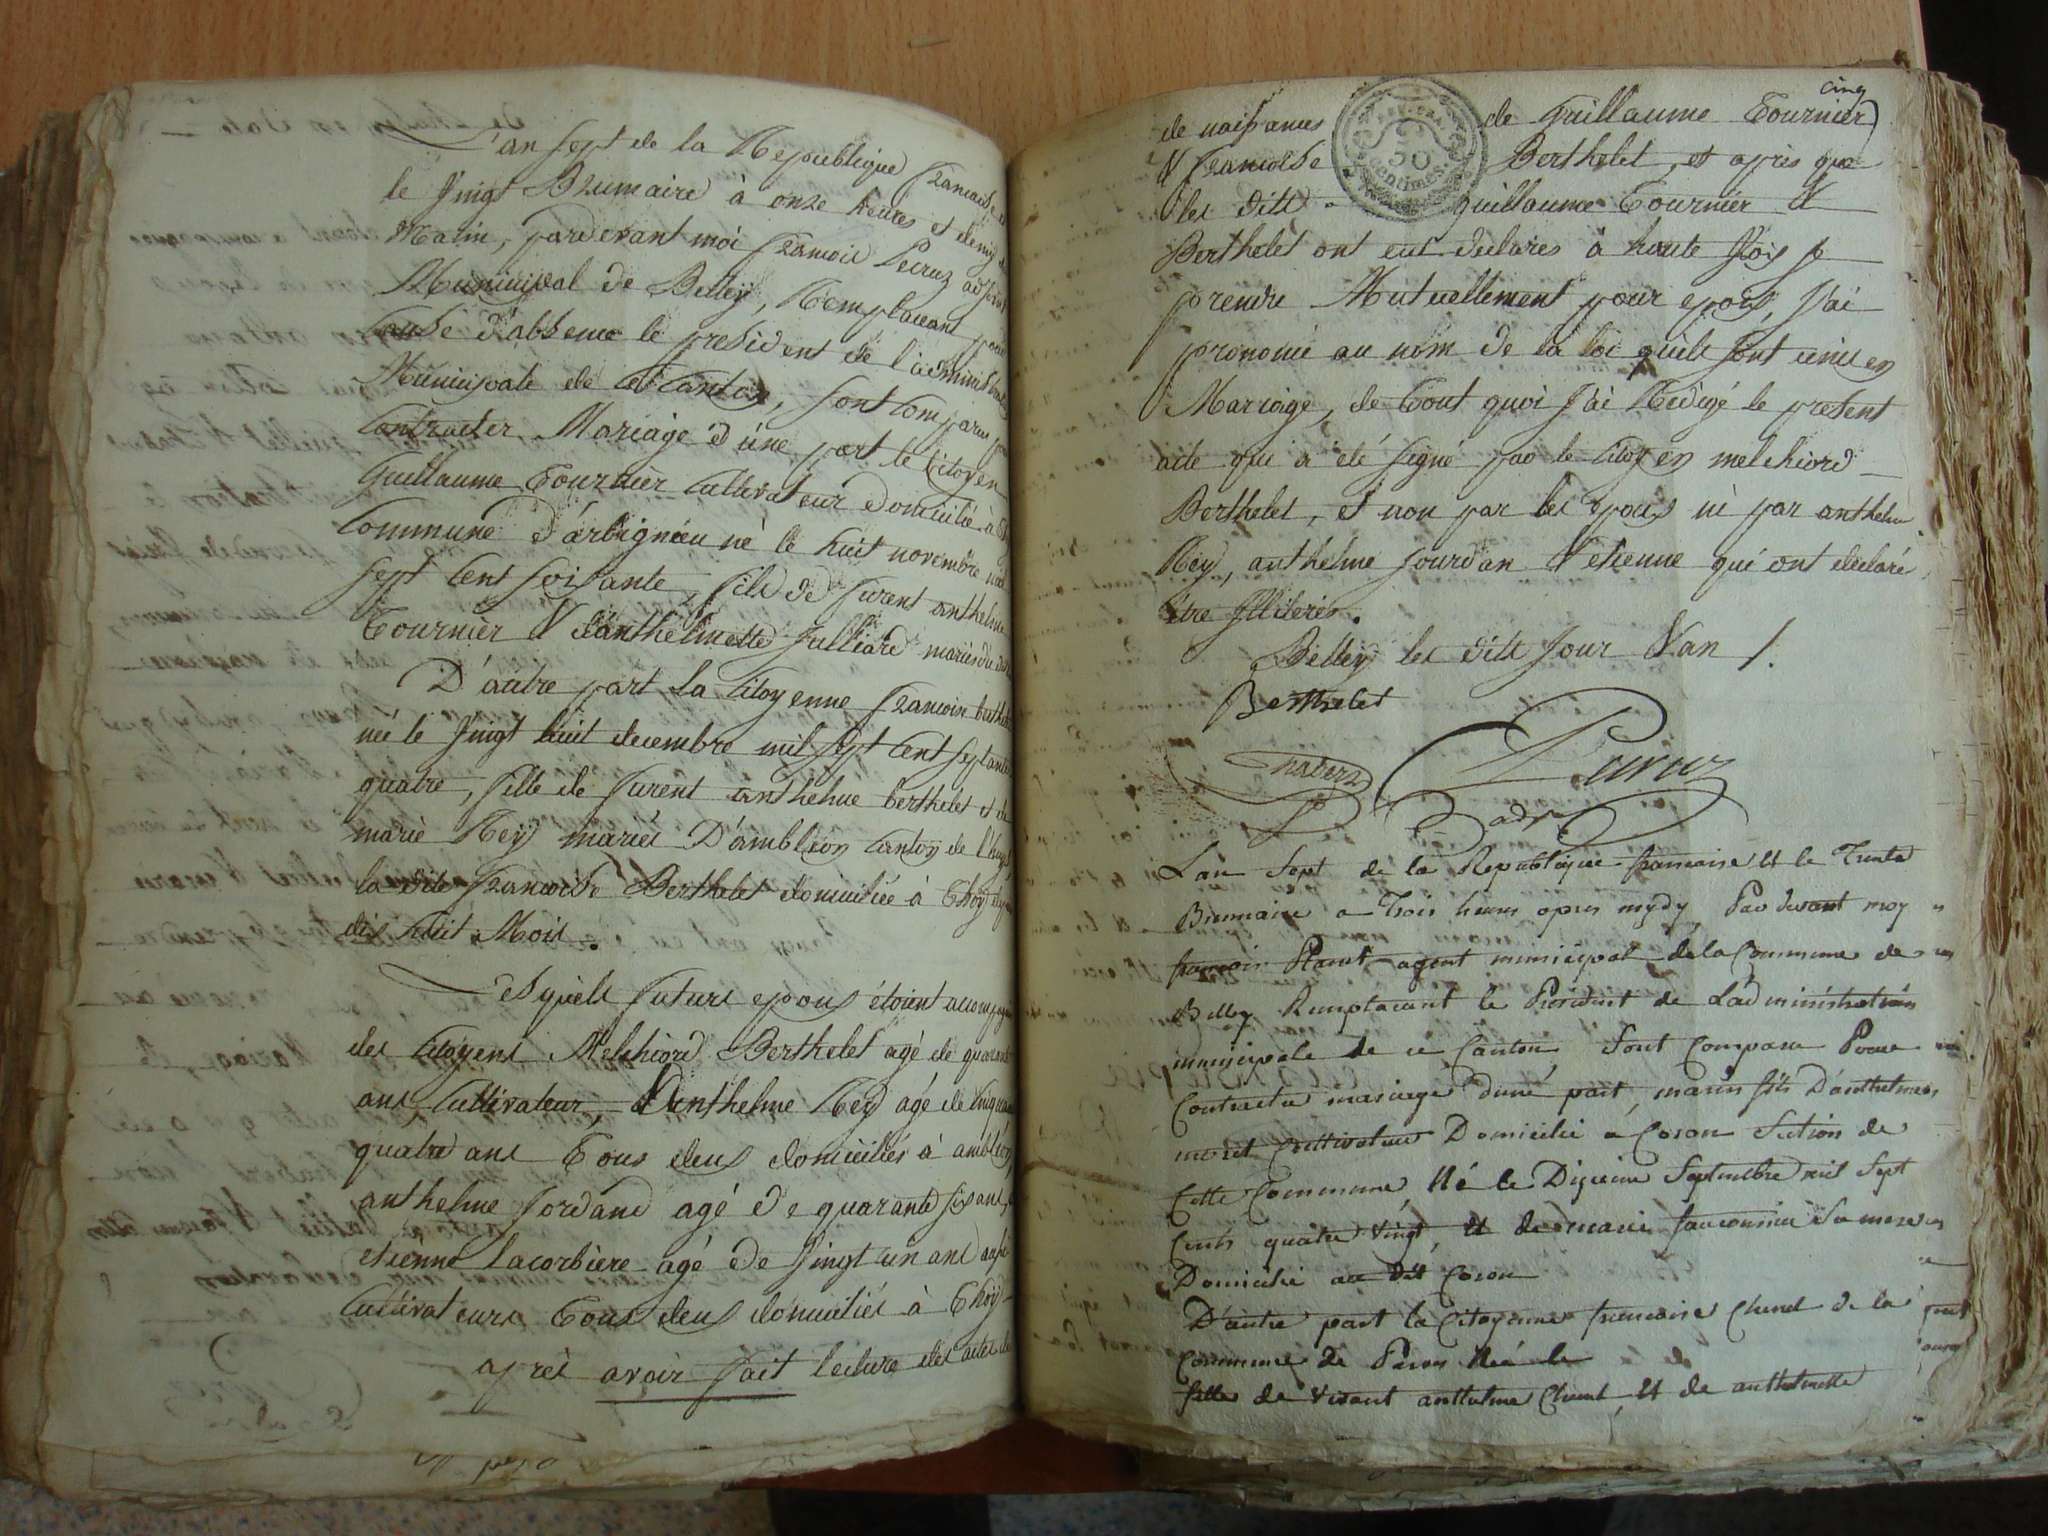 L'an sept de la Republique francaise
le Vingt Brumaire à onze heures et demy
Matin, pardevant moi francois Peruz adjoint
Municipal de Belley, Remplacant pour
Cause d'absence le president de l'administration
Municipale de ce Canton, sont comparus
Contracter Mariage d'úne part le Citoyen
Guillaume Tournier Cultivateur domicilié à
Commune d'arbignieu né le huit novembre mil
sept Cent soisante, fils de furent anthelme
Tournier & d'anthelmette Julliard mariés
D'autre part la Citoyenne francoise berthelet
née le Vingt huit decembre mil sept Cent septante
quatre, fille de furent anthelme berthelet et de
marie Rey mariés D'ambléon Canton de
la dite francoise Berthelet domiciliée à Thoÿ
dis huit Mois.
Lesquels futurs epous étoient accompagnés
des Citoyens Melchiord Berthelet agé de quarante
ans, Cultivateur, Anthelme Rey agé de Cinquante
quatre ans Tous deus domiciliés à ambléon,
anthelme Jordand agé de quarante six ans,
etienne Lacorbière agé de Vingt un ans aussi
Cultivateurs Tous deus domiciliés à Thoÿ
après avoir fait lecture des actes de
cinq
de naissances de Guillaume Tournier
& francoise Berthelet, et après que
les dits Guillaume Tournier &
Berthelet ont eut declarés à haute Voix se
prendre Mutuellement pour epous, J'ai
prononcé au nom de la loi quils sont unis en
Mariage, de Tout quoi J'ai Redigé le present
acte qui a élé signé par le Citoyen melchiord
Berthelet, et non par les epous ni par anthelme
Rey, anthelme Jourdan & etienne qui ont declaré
être Illiterés.
Belley les dits Jour & an /.
Berthelet
Peruz
adj
50
Centimes
L'an Sept de la Republique francaise et le Trente
Brumaire a Trois heures apres mydy, Par devant moy
francois agent municipal de la Commune de
Belley Remplacant le President de L'administration
municipale de ce Canton, Sont Comparu Pour
Contracter mariage d'uné part, marin fils D'anthelme
moret Cultivateur Domicilié a Coron Section de
Cette Commune, Né le Dixieme Septembre mil Sept
Cents quatre vingt, et de marie Sa mere
Domicilié au dit Coron
D'autre part la Citoyenne francoise Chenet de la
Commune de Née le
fille de vivant anthelme Chenet et de anthelmette